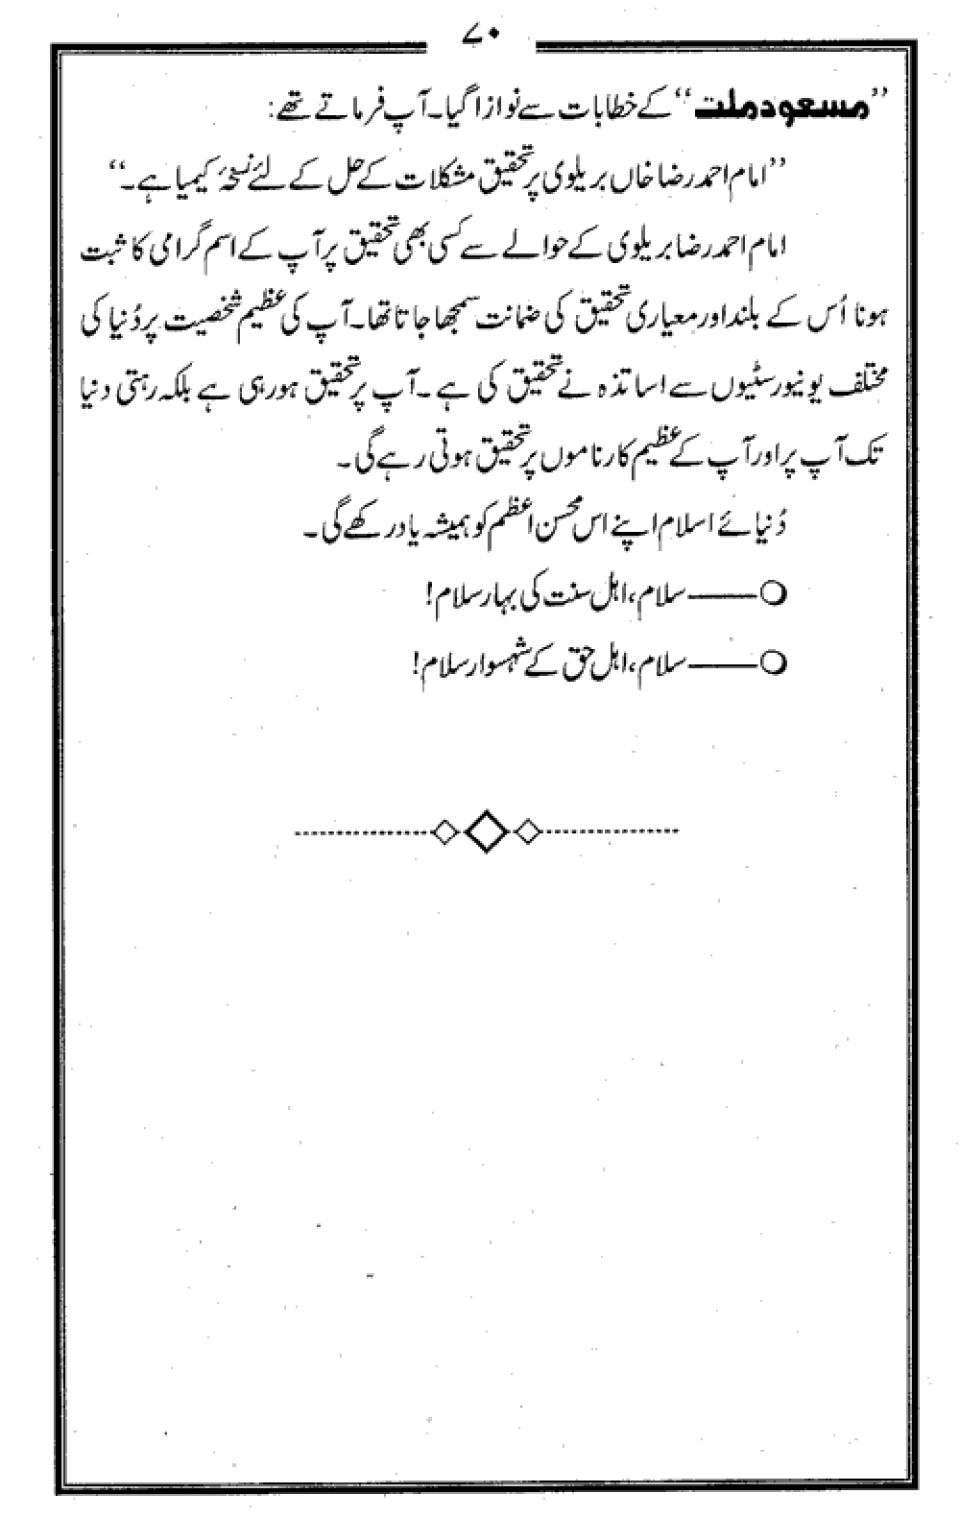 ۷۰
”مسعود ملت“ کے خطابات سے نوازا گیا۔ آپ فرماتے تھے:
”امام احمد رضا خاں بریلوی پر تحقیق مشکلات کے حل کے لئے نسخۂ کیمیا ہے۔“
امام احمد رضا بریلوی کے حوالے سے کسی بھی تحقیق پر آپ کے اسم گرامی کا ثبت
ہونا اُس کے بلند اور معیاری تحقیق کی ضمانت سمجھا جاتا تھا۔ آپ کی عظیم شخصیت پر دُنیا کی
مختلف یونیورسٹیوں سے اساتذہ نے تحقیق کی ہے۔ آپ پر تحقیق ہو رہی ہے بلکہ رہتی دنیا
تک آپ پر اور آپ کے عظیم کارناموں پر تحقیق ہوتی رہے گی۔
دُنیائے اسلام اپنے اس محسن اعظم کو ہمیشہ یاد رکھے گی۔
○——سلام، اہل سنت کی بہار سلام!
○——سلام، اہل حق کے شہسوار سلام!